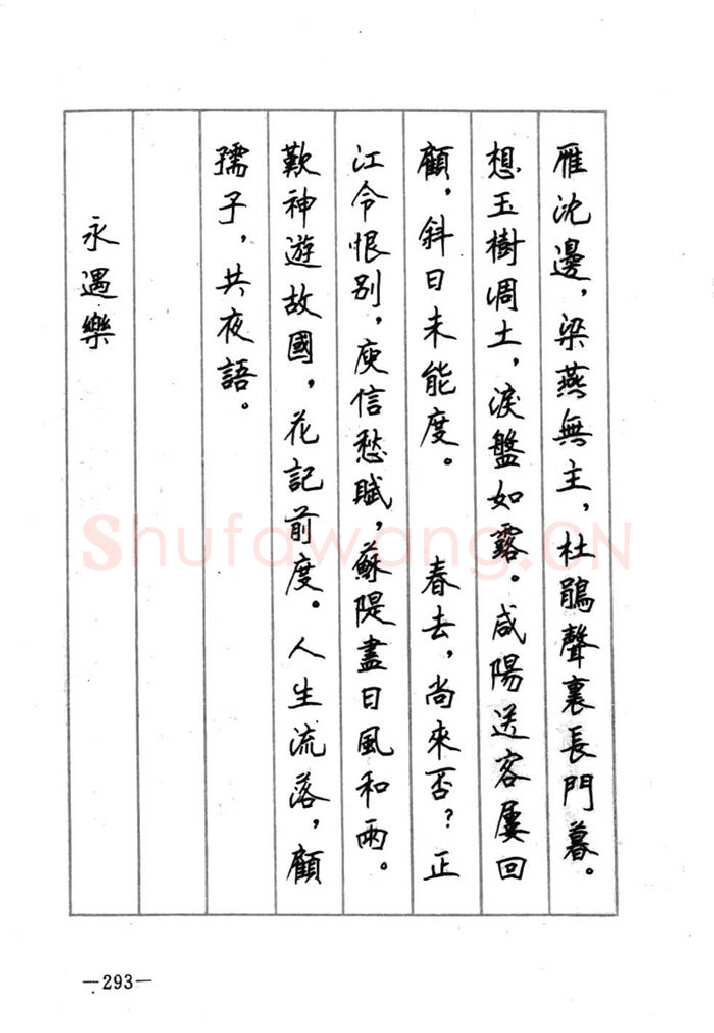 雁沈邊，梁燕無主，杜鵑聲裏長門暮。
想玉樹凋土，淚盤如露。咸陽送客屢回
顧，斜日未能度。　　春去，尚來否？正
江令恨别，庾信愁賦，蘇隄盡日風和雨。
歎神遊故國，花記前度。人生流落，顧
孺子，共夜語。
永遇樂
—293—
Shufawang.CN